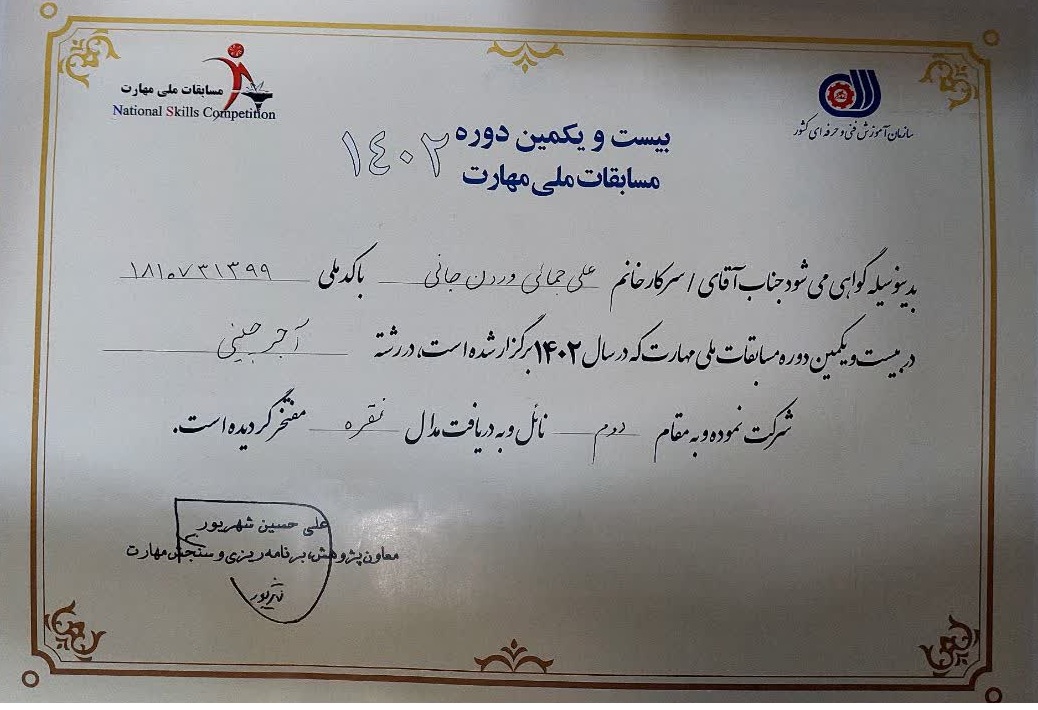 مسابقات ملی مهارت
National Skills Competition
سازمان آموزش فنی و حرفه ای کشور
بیست و یکمین دوره ۱۴۰۲
مسابقات ملی مهارت
بدینوسیله گواهی می شود جناب آقای / سرکار خانم علی جمالی وردن جانی با کد ملی ۱۸۱۰۷۳۱۳۹۹
در بیست و یکمین دوره مسابقات ملی مهارت که در سال ۱۴۰۲ برگزار شده است، در رشته آجر چینی
شرکت نموده و به مقام دوم نائل و به دریافت مدال نقره مفتخر گردیده است.
علی حسین شهریور
معاون پژوهش، برنامه ریزی و سنجش مهارت